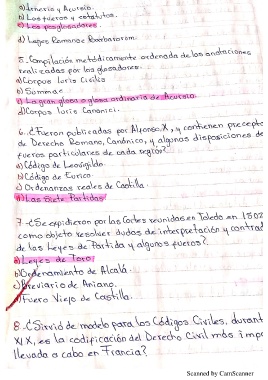 a) Irnerio y Acursio.
b) Los fueros y estatutos.
c) Los posglosadores
d) Leges Romanae Barbarorum.
5. Compilación metódicamente ordenada de las anotaciones
realizadas por los glosadores.
a) Corpus Iuris Civilis
b) Summae
c) La gran glosa o glosa ordinaria de Acursio.
d) Corpus Iuris Canonici.
6. ¿Fueron publicadas por Alfonso X, y contienen precepto
de Derecho Romano, Canónico, y algunas disposiciones de
fueros particulares de cada región?
a) Código de Leovigildo
b) Código de Eurico.
c) Ordenanzas reales de Castilla.
d) Las Siete Partidas
7. ¿Se expidieron por las Cortes reunidas en Toledo en 1502
como objeto resolver dudas de interpretación y contrad
de las Leyes de Partida y algunos fueros?
a) Leyes de Toro
b) Ordenamiento de Alcalá.
c) Breviario de Aniano.
d) Fuero Viejo de Castilla.
8. ¿Sirvió de modelo para los Códigos Civiles, durant
XIX, es la codificación del Derecho Civil más imp
llevada a cabo en Francia?
Scanned by CamScanner